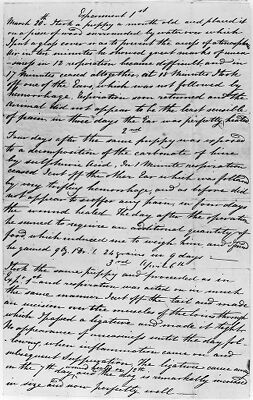 Experiment 1st
March 20. I took a puppy a month old and placed it
on a piece of wood surrounded by water over which
I put a glass cover so as to prevent the access of atmospheric
air, in ten minutes he showed great marks of uneasi-
ness in 12 respiration became difficult and in
17 minutes ceased altogether, at 18 Minutes I took
off one of the Ears, which was not followed by
hemorrhage. Respiration soon returned and the
animal did not appear to be the least sensible
of pain, in three days the Ear was perfectly healed
2nd
Four days after the same puppy was exposed
to a decomposition of the carbonate of lime
by sulphuric Acid. In 1 Minute respiration
ceased I cut off the other Ear which was followed
by very trifling hemorrhage, and as before did
not appear to suffer any pain, in four days
the wound healed. The day after the operation
he seemed to require an additional quantity of
food which induced me to weigh him and I found
he gained 9 oz 1 Dr. & 24 grains in 9 days
3rd April 6th
Took the same puppy and proceeded as in
Exp. 1 and respiration was acted on in much
the same manner. I cut off the tail and made
an incision over the muscles of the loins through
which I passed a ligature and made it tight.
No appearance of uneasiness until the day fol-
lowing when inflammation came on and
subsequent suppuration, the ligature came away
on the 7th day and the dog is remarkably increased
in size and now perfectly well